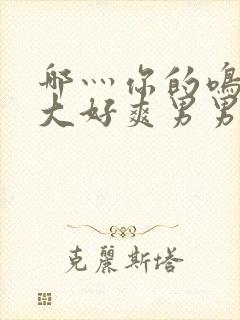 哪灬你的鳴
大好爽男男
克麗斯塔